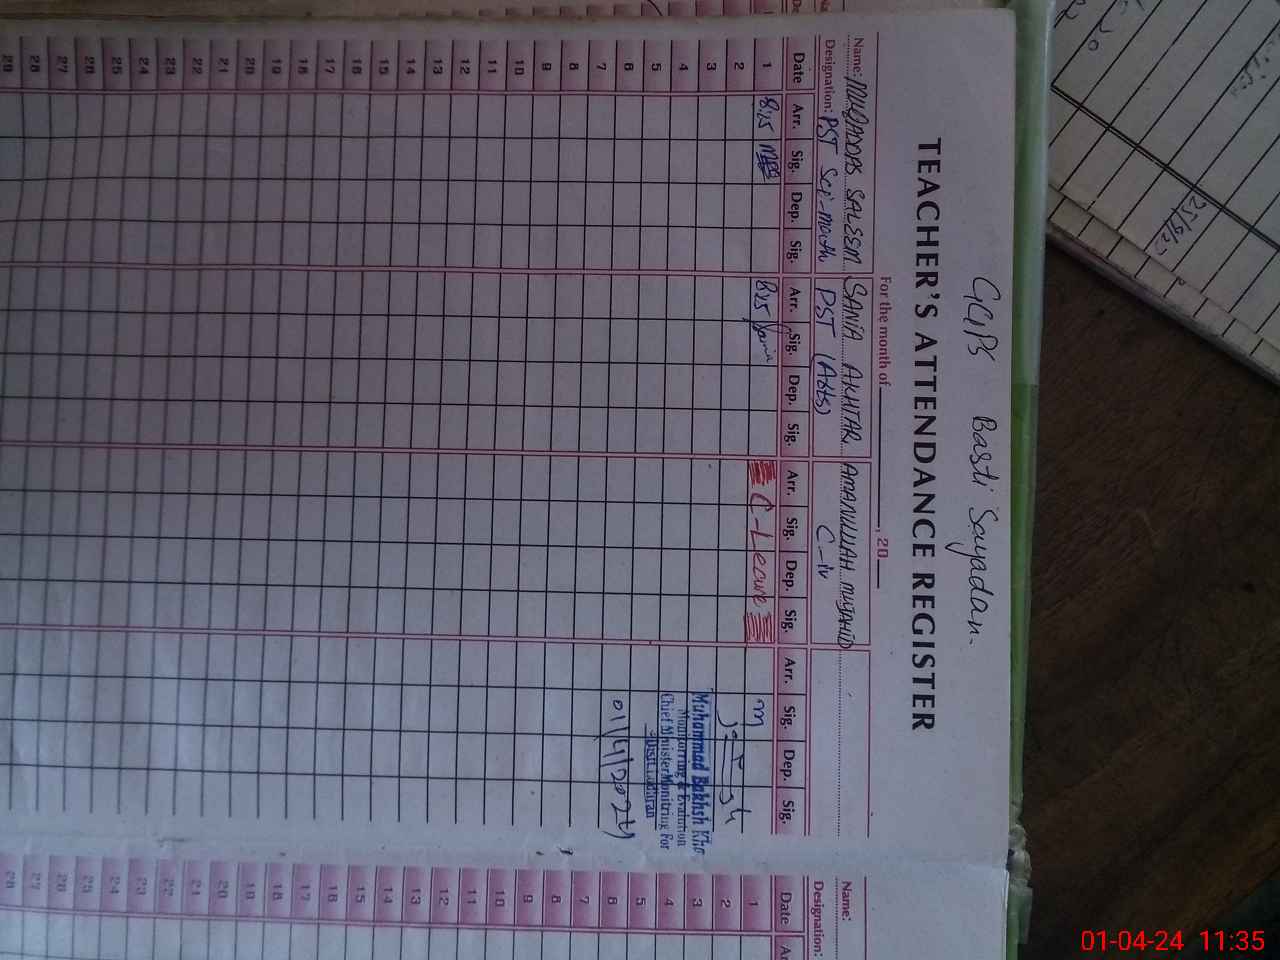 GGPS Basti Sayadan.
TEACHER'S ATTENDANCE REGISTER
For the month of , 20
Name: SALEEM SANIA AKHTAR AMANULLAH MUJAHID
Designation: PST Sci-math PST (Arts) C-iv
Date Arr. Sig. Dep. Sig. Arr. Sig. Dep. Sig. Arr. Sig. Dep. Sig. Arr. Sig. Dep. Sig.
1 8:15 8:15 Sania C-Leave
2
3
4
5
6
7
8
9
10
11
12
13
14
15
16
17
18
19
20
21
22
23
24
25
26
27
28
29
Muhammad Bakhsh Kho
Monitorring & Evalution
Chief Minister Monitring For
Distt. Lodhran
01/4/2024
Name:
Designation:
Date
1
2
3
4
5
6
7
8
9
10
11
12
13
14
15
16
17
18
19
20
21
22
23
24
25
26
27
28
01-04-24 11:35